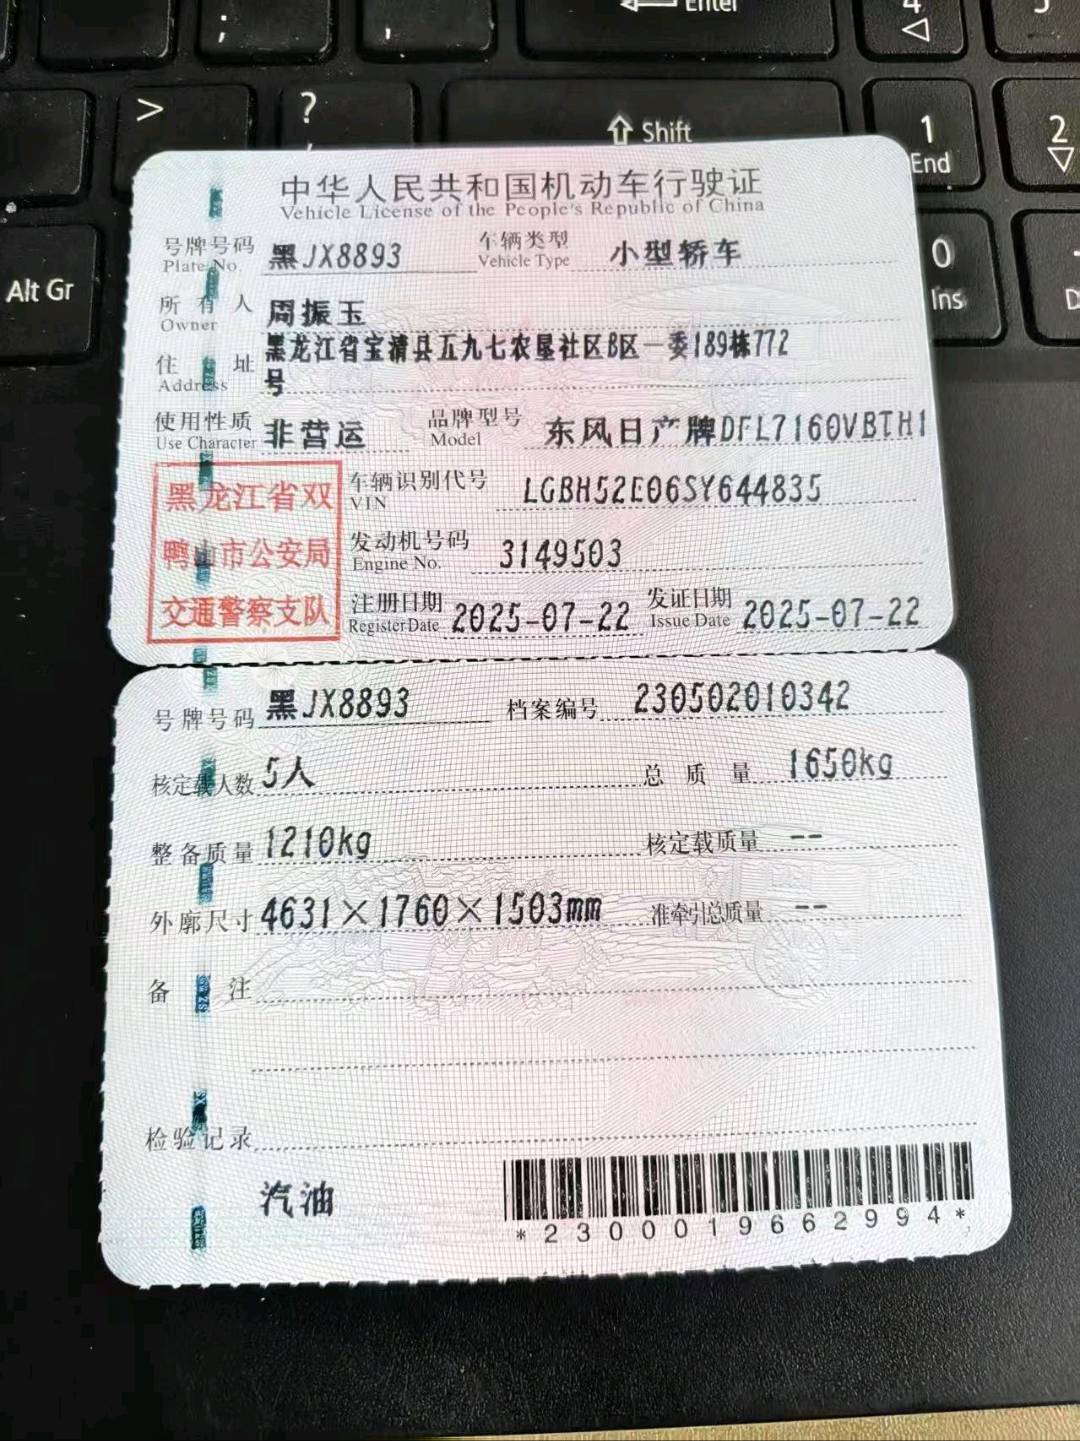 Enter
4
;
>
?
Shift
1
End
2
0
Ins
Alt Gr
中华人民共和国机动车行驶证
Vehicle License of the People's Republic of China
号牌号码 黑JX8893 车辆类型 小型轿车
Plate No. Vehicle Type
所有人 周振玉
Owner
住址 黑龙江省宝清县五九七农垦社区B区一委189栋772
Address 号
使用性质 非营运 品牌型号 东风日产牌DFL7160VBTH1
Use Character Model
黑龙江省双
鸭山市公安局
交通警察支队
车辆识别代号 LGBH52E06SY644835
VIN
发动机号码 3149503
Engine No.
注册日期 2025-07-22 发证日期 2025-07-22
Register Date Issue Date
号牌号码 黑JX8893 档案编号 230502010342
核定载人数 5人 总质量 1650kg
整备质量 1210kg 核定载质量 --
外廓尺寸 4631×1760×1503mm 准牵引总质量 --
备注
检验记录
汽油
*2300019662994*